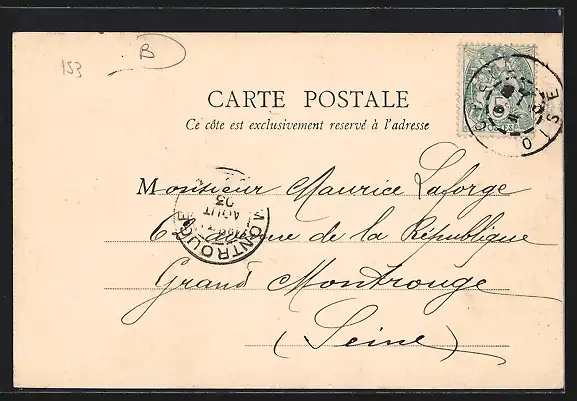 153
B
CARTE POSTALE
Ce côte est exclusivement reservé à l'adresse
OISE
5
Monsieur Maurice Laforge
MONTROUGE
AOUT
03
avenue de la République
Grand Montrouge
(Seine)